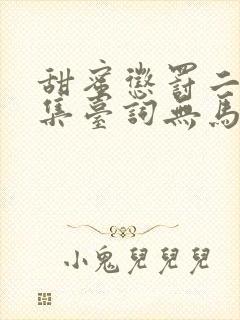 甜蜜懲罰二
集臺詞無馬
小鬼兒兒兒